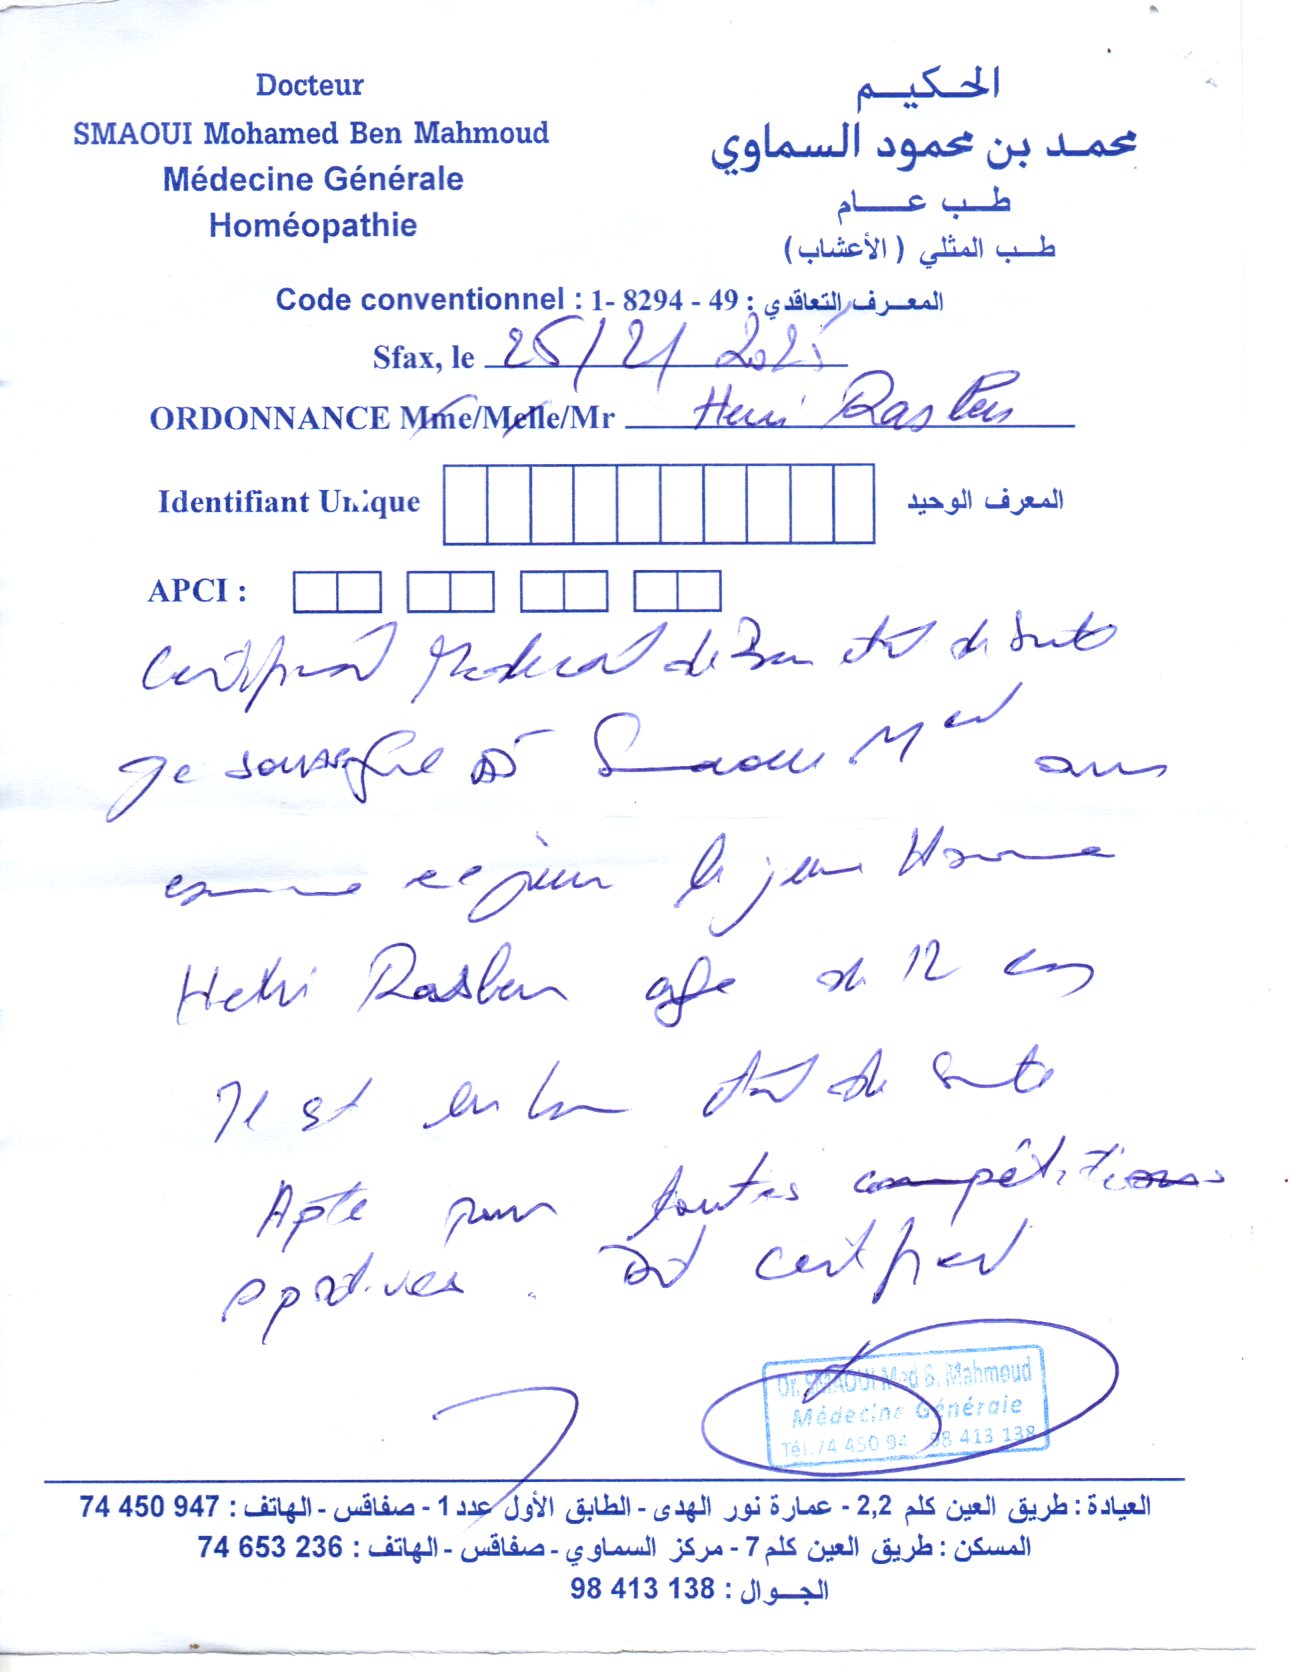 Docteur
SMAOUI Mohamed Ben Mahmoud
Médecine Générale
Homéopathie
الحكيم
محمد بن محمود السماوي
طب عام
طب المثلي (الأعشاب)
Code conventionnel : 1- 8294 - 49 : المعرف التعاقدي
Sfax, le 2025
ORDONNANCE Mme/Melle/Mr
Identifiant Unique المعرف الوحيد
APCI :
Certificat Medical de Bon etat de Sante
Je soussigne Dr Smaoui Med
ce jour le jeune Homme
age de 12 ans
Il est en bon etat de Sante
Apte pour toutes compétitions
sportives. Dt certificat
Dr. SMAOUI Med B. Mahmoud
Médecine Générale
Tél.74 450 94 98 413 138
العيادة : طريق العين كلم 2,2 - عمارة نور الهدى - الطابق الأول عدد 1 - صفاقس - الهاتف : 74 450 947
المسكن : طريق العين كلم 7 - مركز السماوي - صفاقس - الهاتف : 74 653 236
الجوال : 98 413 138